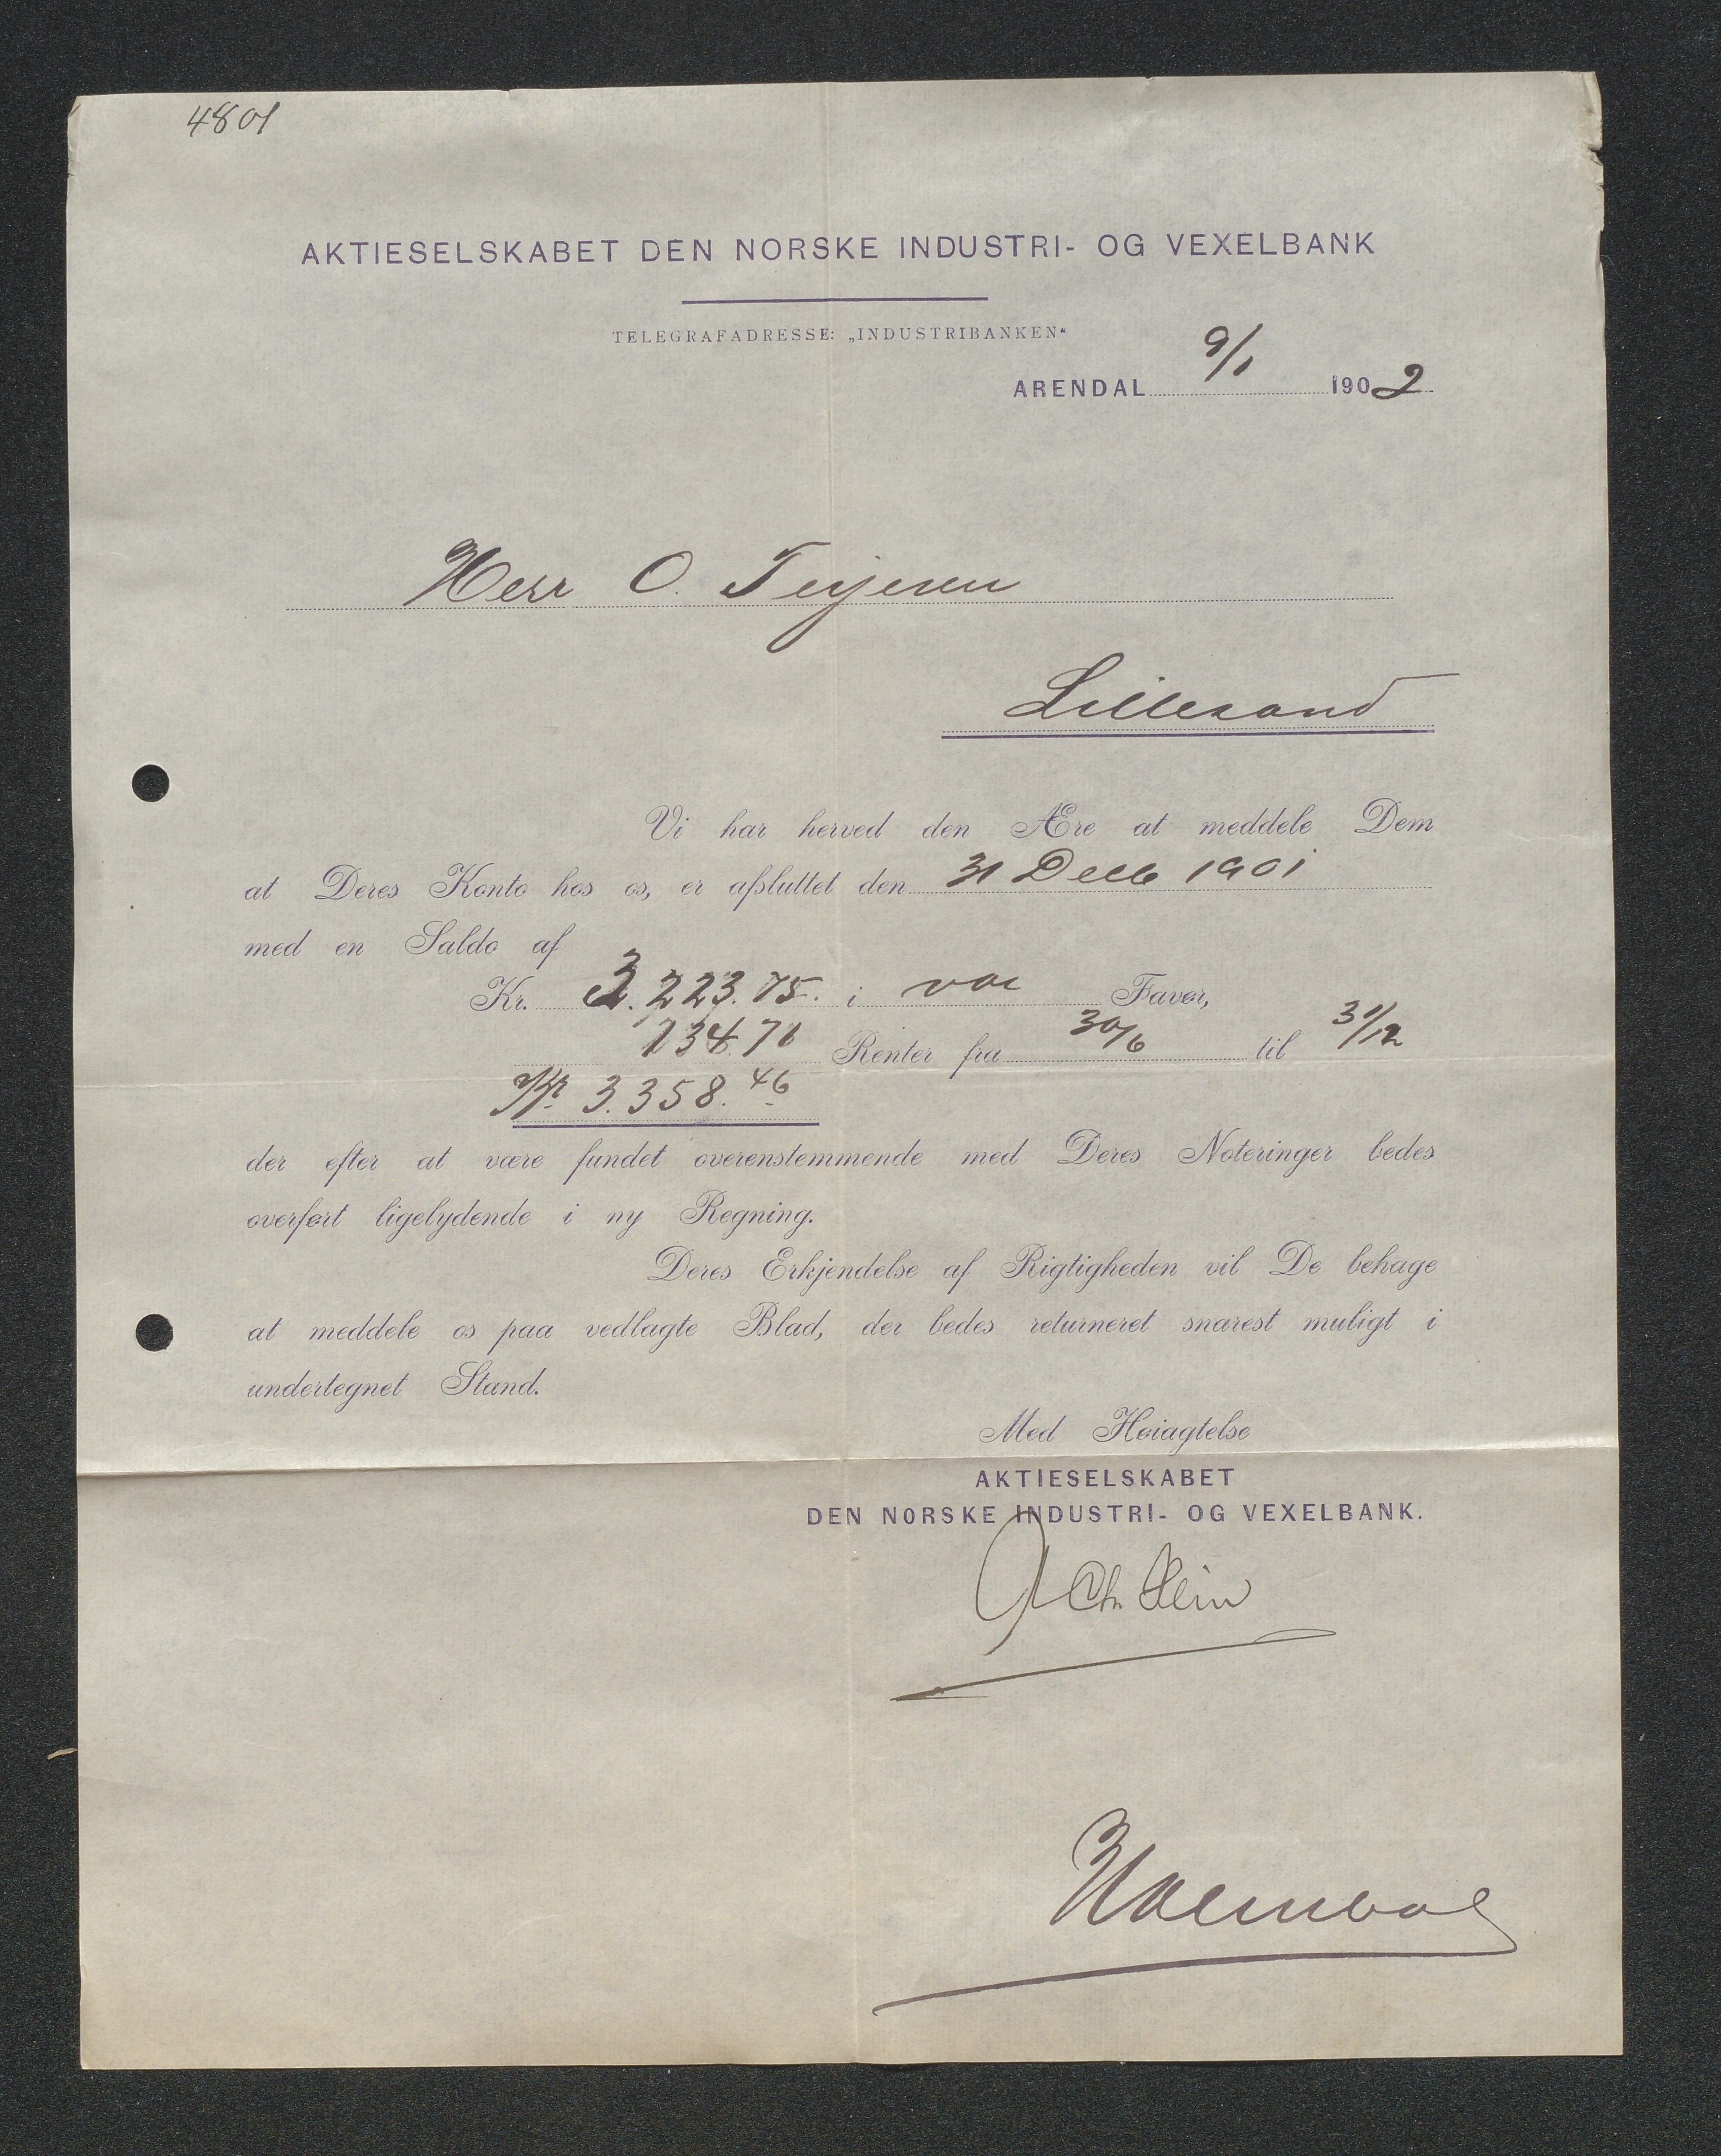 4801
AKTIESELSKABET DEN NORSKE INDUSTRI- OG VEXELBANK
TELEGRAFADRESSE: „INDUSTRIBANKEN“
ARENDAL 9/1 1902
Herr O. Terjesen
Lillesand
Vi har herved den Ære at meddele Dem
at Deres Konto hos os, er afsluttet den 31 Decb 1901
med en Saldo af
Kr. 3.223.75. i vor Favør,
134.71 Renter fra 30/6 til 31/12
Kr 3.358.46
der efter at være fundet overenstemmende med Deres Noteringer bedes
overført ligelydende i ny Regning.
Deres Erkjendelse af Rigtigheden vil De behage
at meddele os paa vedlagte Blad, der bedes returneret snarest muligt i
undertegnet Stand.
Med Høiagtelse
AKTIESELSKABET
DEN NORSKE INDUSTRI- OG VEXELBANK.
Chr